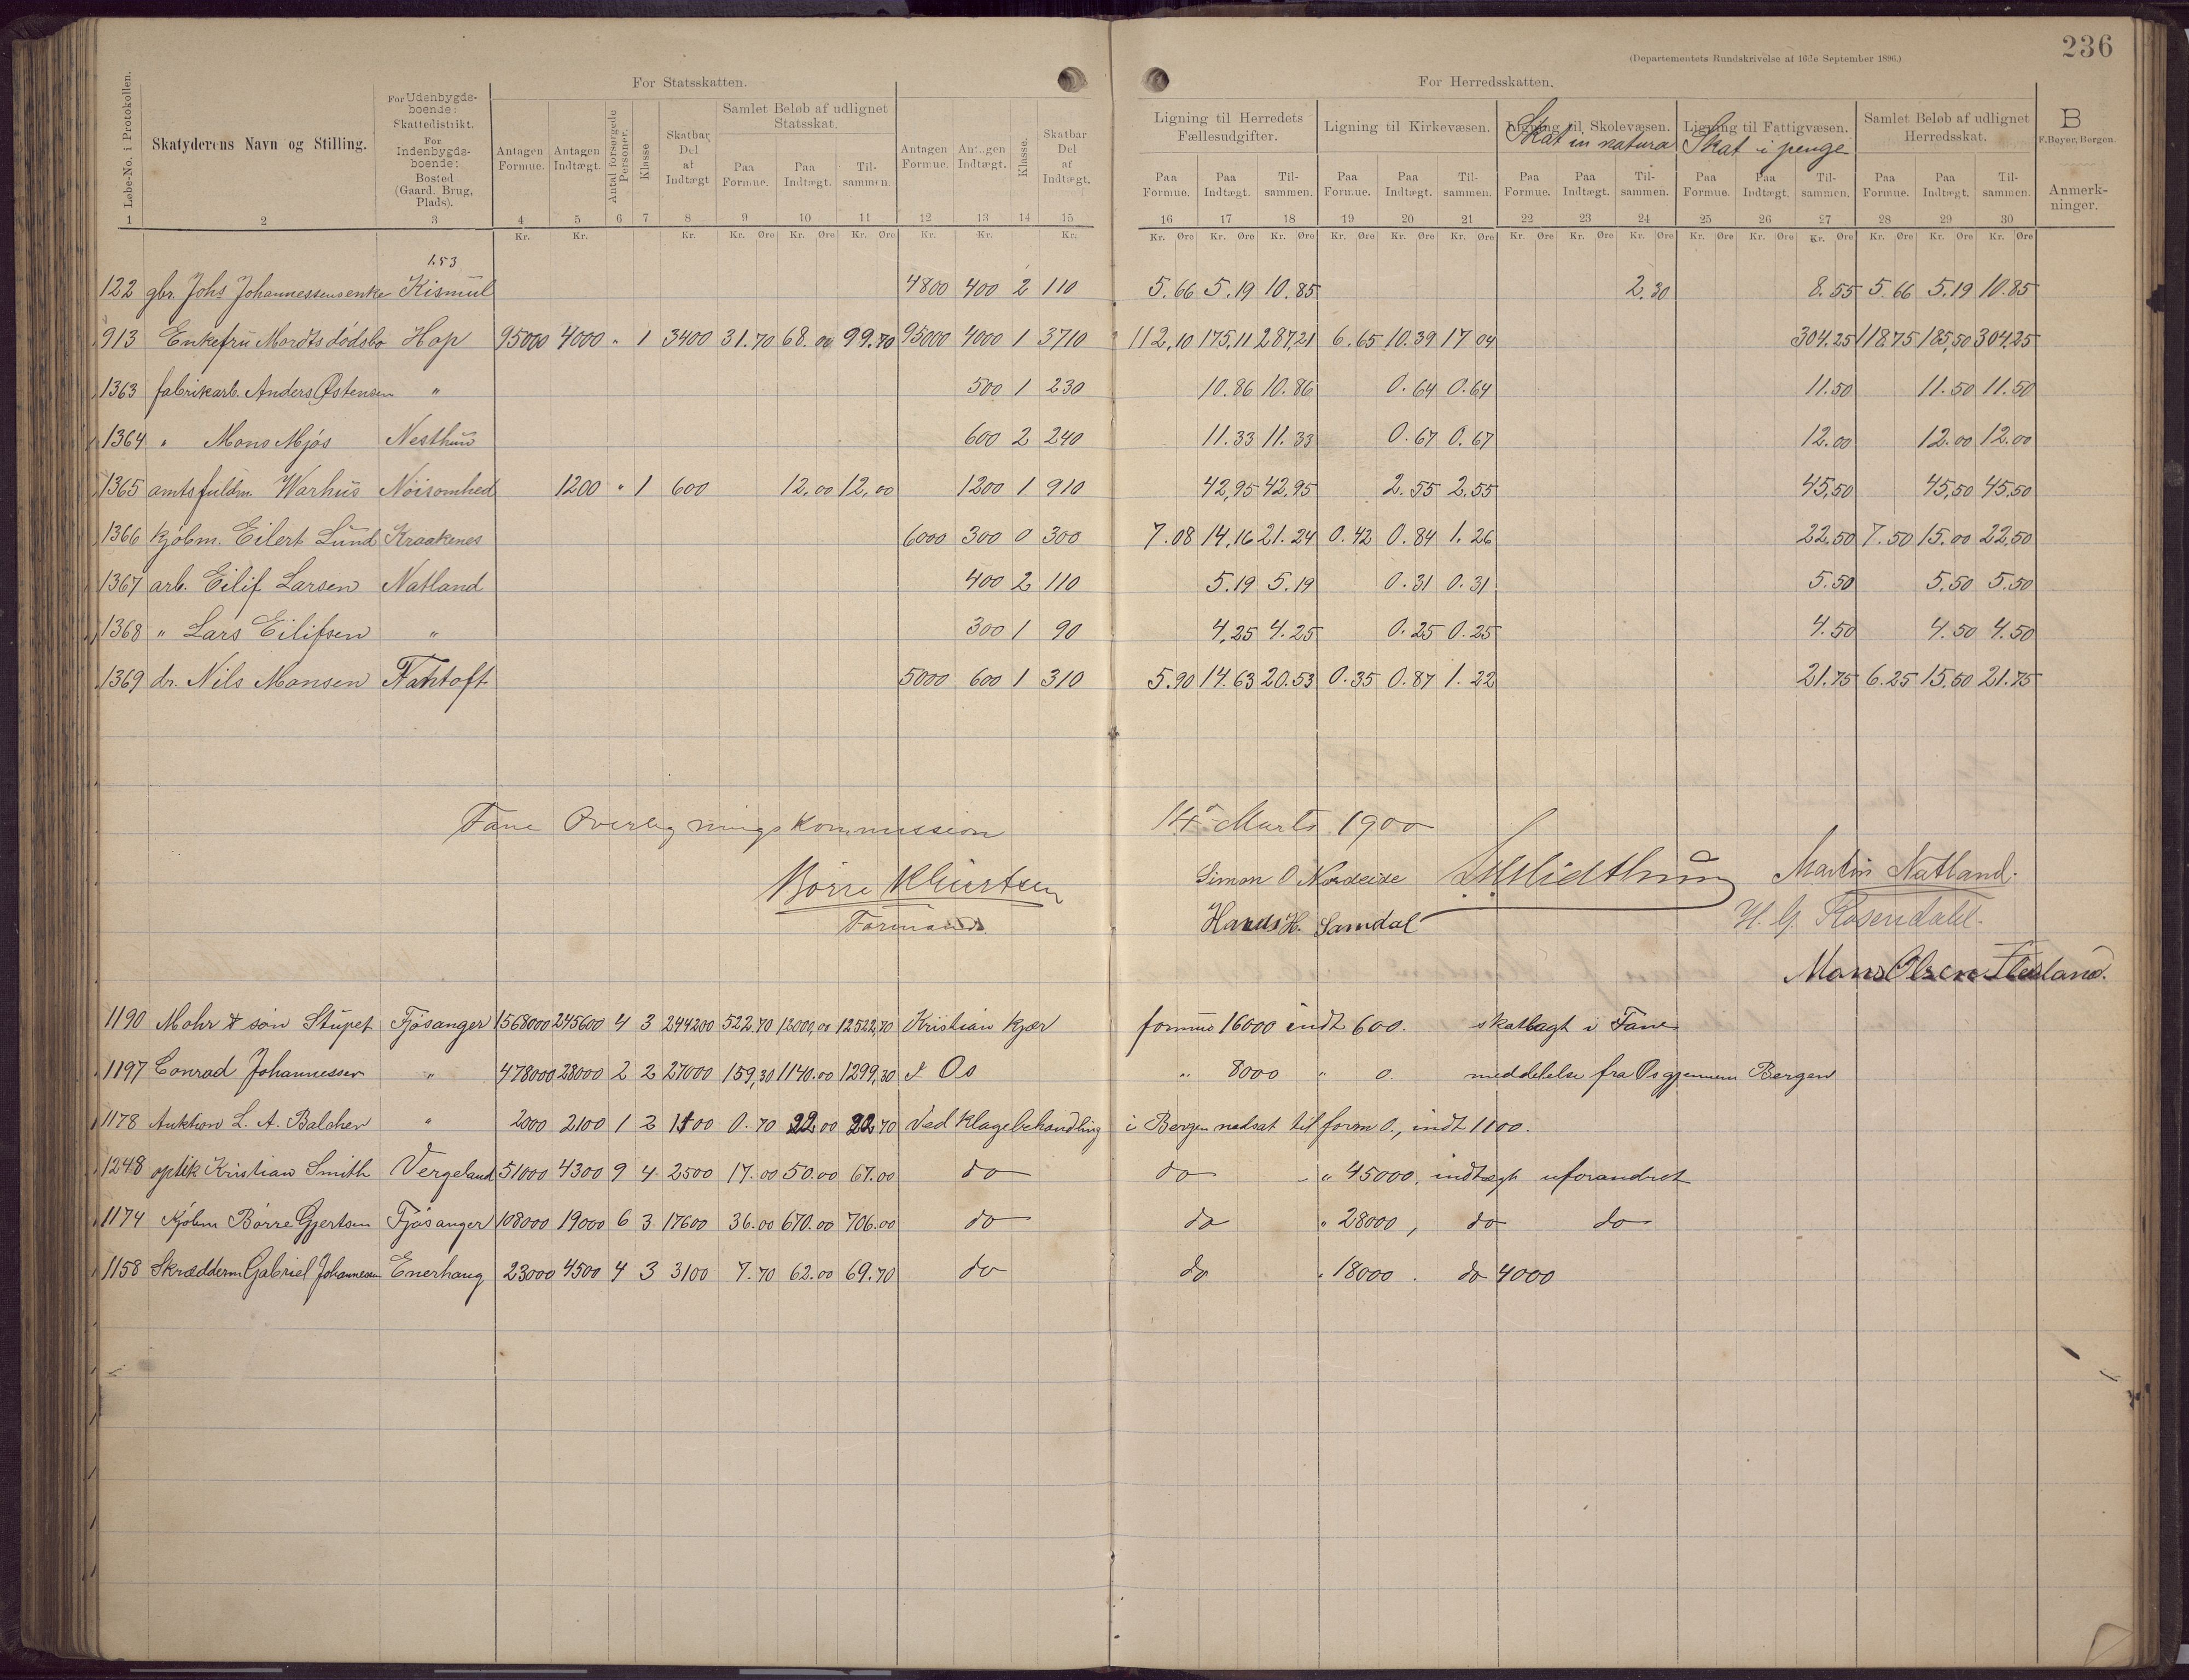 236
(Departementets Rundskrivelse af 16de September 1896.)
For Statsskatten. For Herredsskatten.
Løbe-No. i Protokollen. Skatyderens Navn og Stilling. For Udenbygdsboende: Skattedistrikt. For Indenbygdsboende: Bosted (Gaard, Brug, Plads). Antagen Formue. Antagen Indtægt. Antal forsørgede Personer. Klasse Skatbar Del af Indtægt Samlet Beløb af udlignet Statsskat. Paa Formue. Paa Indtægt. Tilsammen. Antagen Formue. Antagen Indtægt. Klasse. Skatbar Del af Indtægt. Ligning til Herredets Fællesudgifter. Paa Formue. Paa Indtægt. Tilsammen. Ligning til Kirkevæsen. Paa Formue. Paa Indtægt. Tilsammen. Ligning til Skolevæsen. Skat in natura Paa Formue. Paa Indtægt. Tilsammen. Ligning til Fattigvæsen. Skat i penge Paa Formue. Paa Indtægt. Tilsammen. Samlet Beløb af udlignet Herredsskat. Paa Formue. Paa Indtægt. Tilsammen. B F. Beyer, Bergen. Anmerkninger.
1 2 3 4 5 6 7 8 9 10 11 12 13 14 15 16 17 18 19 20 21 22 23 24 25 26 27 28 29 30
Kr. Kr. Kr. Kr. Øre Kr. Øre Kr. Øre Kr. Kr. Kr. Kr. Øre Kr. Øre Kr. Øre Kr. Øre Kr. Øre Kr. Øre Kr. Øre Kr. Øre Kr. Øre Kr. Øre Kr. Øre Kr. Øre Kr. Øre Kr. Øre Kr. Øre
153
122 gbr. Johs Johannessens enke Kismul 4800 400 2 110 5.66 5.19 10.85 2.30 8.55 5.66 5.19 10.85
913 Enkefru Mordts dödsbo Hop 95000 4000 " 1 3400 31.70 68.00 99.70 95000 4000 1 3710 112,10 175,11 287,21 6.65 10.39 17 04 304.25 118.75 185,50 304,25
1363 fabrikarb. Anders Østensen " 500 1 230 10.86 10.86 0.64 0.64 11.50 11.50 11.50
1364 " Mons Mjös Nesthus 600 2 240 11.33 11.33 0.67 0.67 12.00 12.00 12.00
1365 amtsfuldm. Warhus Nöisomhed 1200 " 1 600 12.00 12,00 1200 1 910 42,95 42,95 2.55 2.55 45,50 45,50 45,50
1366 kjöbm. Eilert Lund Kraakenes 6000 300 0 300 7.08 14,16 21.24 0.42 0.84 1.26 22.50 7.50 15.00 22,50
1367 arb. Eilif Larsen Natland 400 2 110 5.19 5.19 0.31 0.31 5.50 5.50 5.50
1368 " Lars Eilifsen " 300 1 90 4,25 4.25 0.25 0.25 4.50 4.50 4.50
1369 dr. Nils Monsen Fantoft 5000 600 1 310 5.90 14.63 20.53 0.35 0.87 1.22 21.75 6.25 15,50 21.75
Fane Overligningskommission 14de Marts 1900
Börre Simon O Nordeide Martin Natland.
Formand Hans H. Samdal H. G. Rosendahl.
Mons Olsen Flesland.
1190 Mohr & sön Stupet Fjösanger 1568000 245600 4 3 244200 522.70 12000,00 12522,70 Kristian Kjær formue 16000 indt 600. skatlagt i Fane
1197 Conrad Johannessen " 478000 28000 2 2 27000 159,30 1140.00 1299,30 I Os " 8000 " 0. meddelelse fra Os gjennem Bergen
1178 Auktion L. A. Balchen " 2000 2100 1 2 1100 0.70 22.00 22.70 Ved klagebehandling i Bergen nedsat til form 0., indt 1100.
1248 optik Kristian Smith Vergeland 51000 4300 9 4 2500 17.00 50.00 67.00 do do " 45000, indtægt uforandret
1174 Kjöbm Börre Gjertsen Fjösanger 108000 19000 6 3 17600 36.00 670.00 706.00 do do " 28000, do do
1158 Skrædderm Gabriel Johannesen Enerhaug 23000 4500 4 3 3100 7.70 62.00 69.70 do do " 18000. do 4000